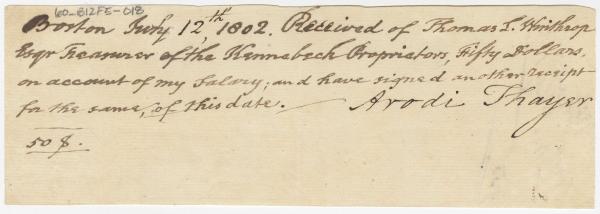 60-B12FE-018
Boston July 12th, 1802. Received of Thomas L. Winthrop
Esqr Treasurer of the Kennebeck Proprietors, Fifty Dollars.
on account of my Salary; and have signed another receipt
for the same, of this date. — Arodi Thayer
50 $.